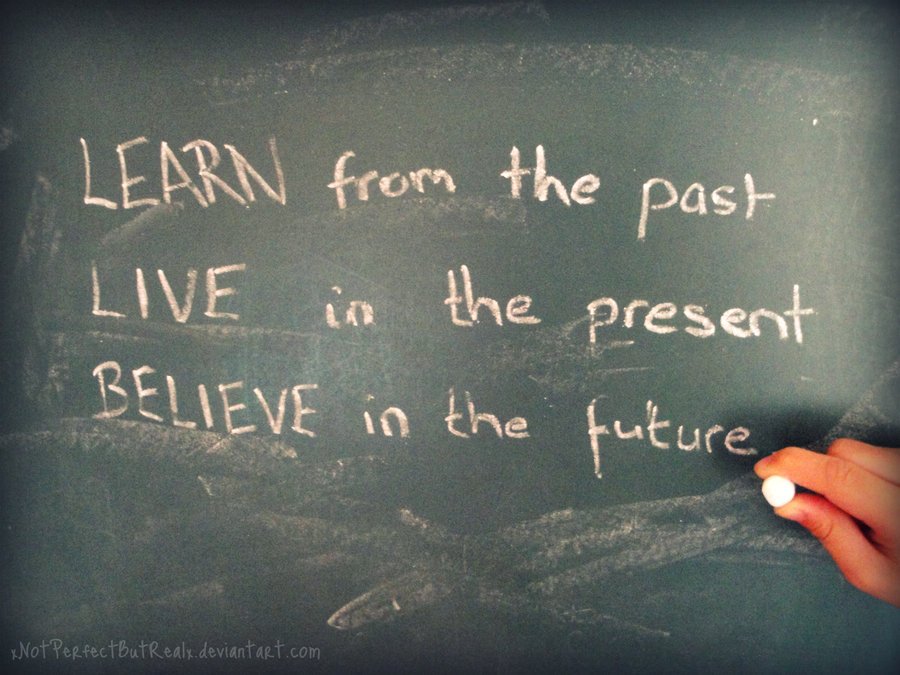 LEARN from the past
LIVE in the present
BELIEVE in the future
xNotPerfectButRealx.deviantart.com